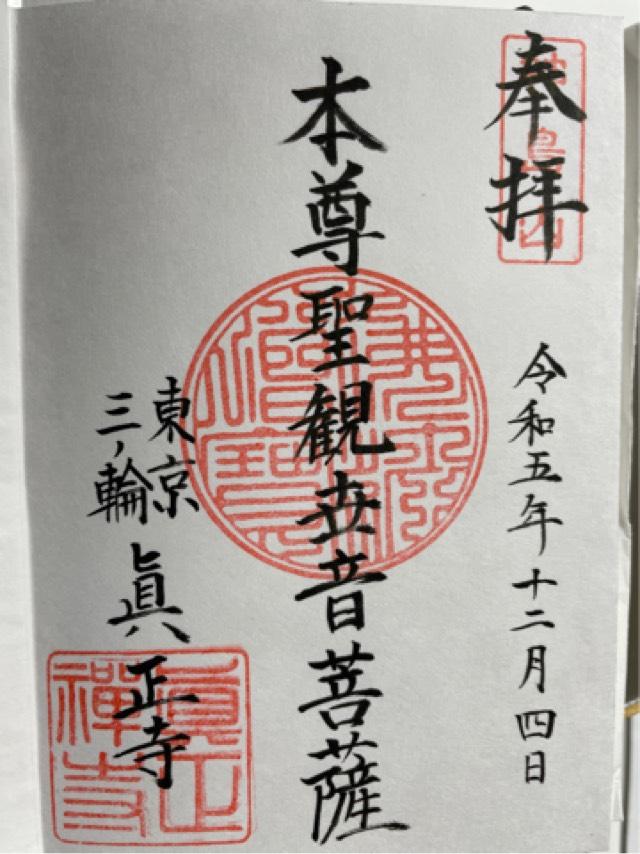 奉拝
令和五年十二月四日
本尊聖観世音菩薩
東京
三ノ輪
眞正寺
佛法僧寶
眞正
禪寺